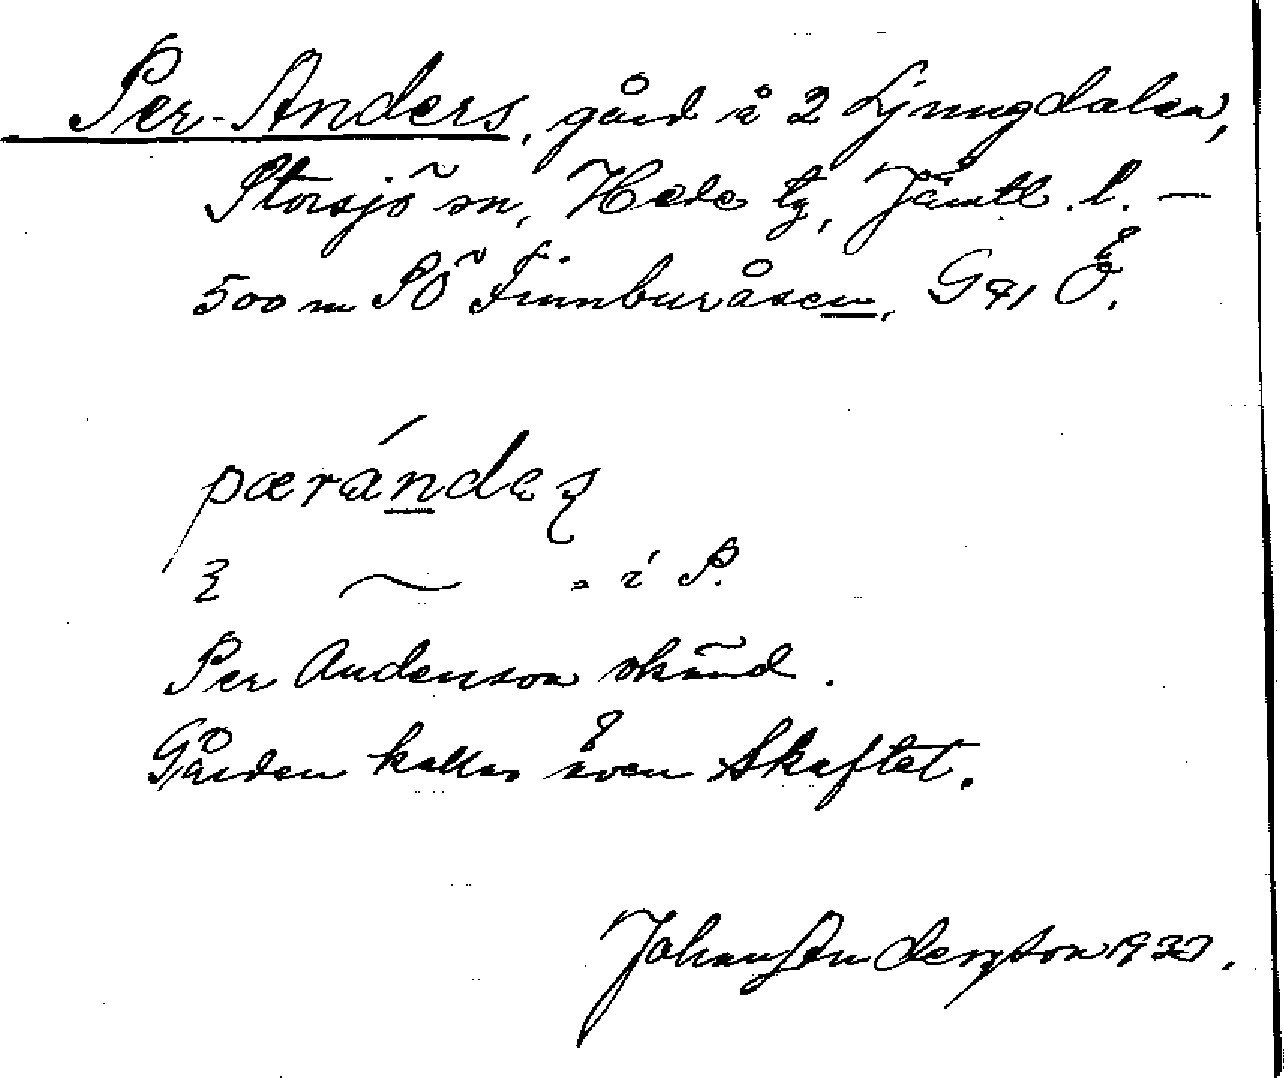 Per-Anders, gård i 2 Ljungdalen,
Storsjö sn, Hede tg, Jämtl. l. —
500 m SÖ Finnburåsen, G 91 Ö.
pæránde
i P.
Per Anderson skänd.
Gården kallas även Skaftet.
Johan Anderzson 1937.